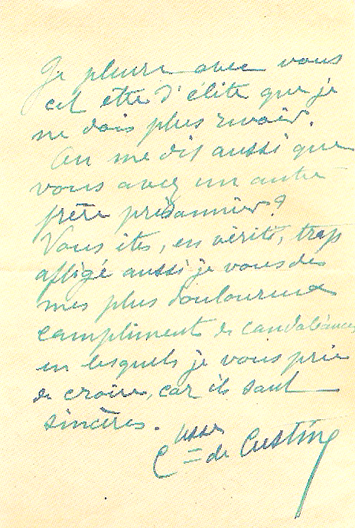 Je pleure avec vous
cet être d'élite que je
ne dois plus revoir.
On me dit aussi que
vous avez un autre
frère prisonnier?
Vous êtes, en vérité, trop
afligé aussi je vous dis
mes plus douloureux
compliments de condoléances
en lesquels je vous prie
de croire, car ils sont
sincères.
Ctesse de Custine